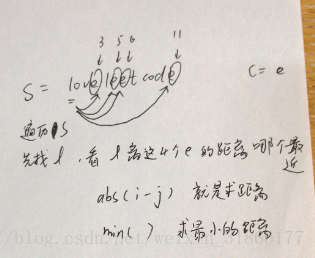 3 5 6 11
S = loveleetcode C = e
遍历 S
先找 l , 看 l 离这4个 e 的距离 哪个最近
abs(i-j) 就是求距离
min( ) 求最小的距离